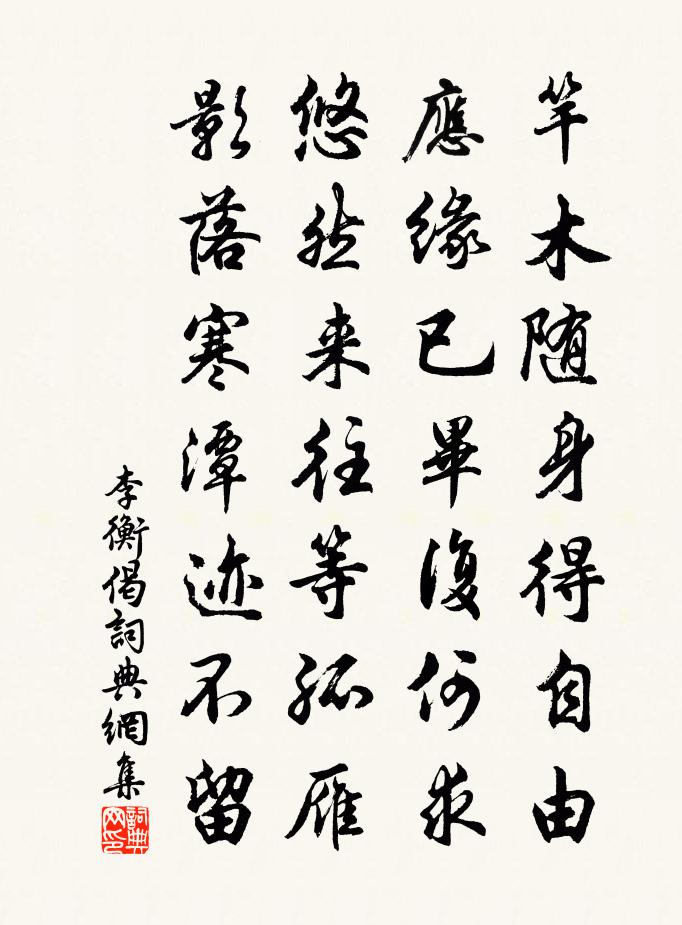 竿木随身得自由
應緣已畢復何求
悠然来往等孤雁
影落寒潭迹不留
李衡偈詞典網集
詞典网印